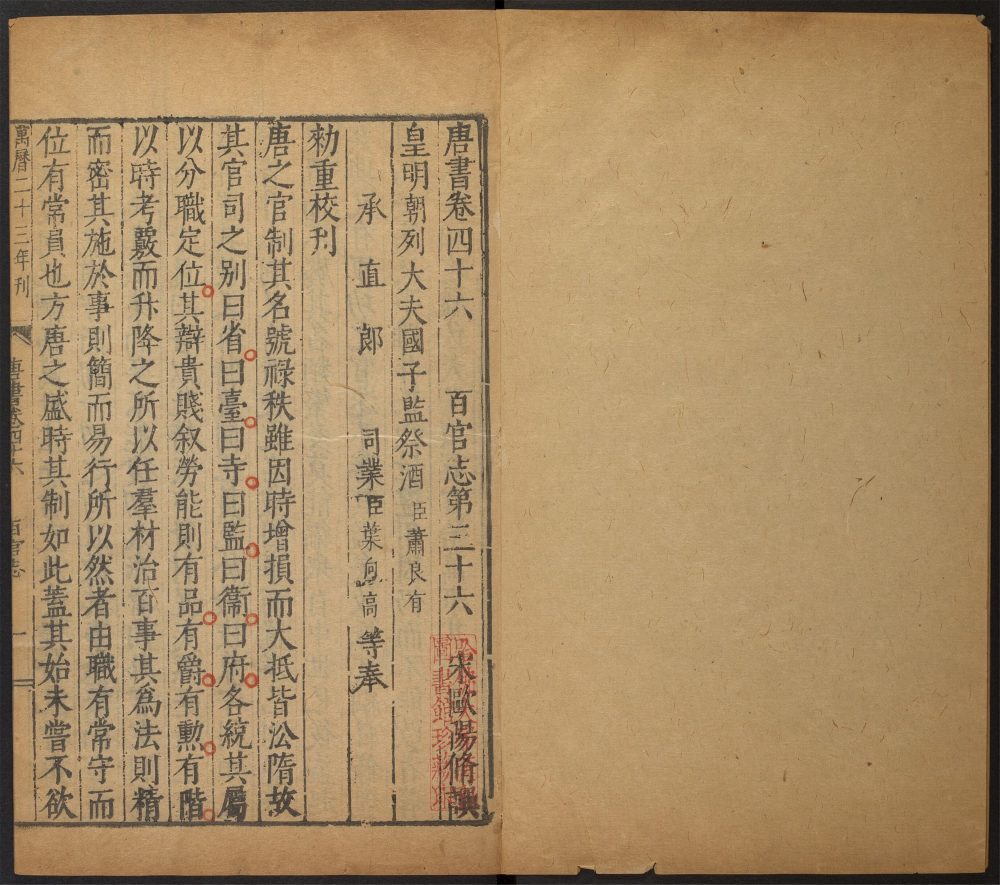 唐書卷四十六 百官志第三十六 宋歐陽脩撰
皇明朝列大夫國子監祭酒臣蕭良有
承直郎 司業臣葉向高等奉
勑重校刊
唐之官制其名號祿秩雖因時增損而大抵皆㳂隋故
其官司之别曰省曰臺曰寺曰監曰衞曰府各統其屬
以分職定位其辯貴賤叙勞能則有品有爵有勲有階
以時考覈而升降之所以任羣材治百事其爲法則精
而密其施於事則簡而易行所以然者由職有常守而
位有常員也方唐之盛時其制如此蓋其始未嘗不欲
萬曆二十三年刊 唐書卷四十六 百官志 一
圖書館珍藏印